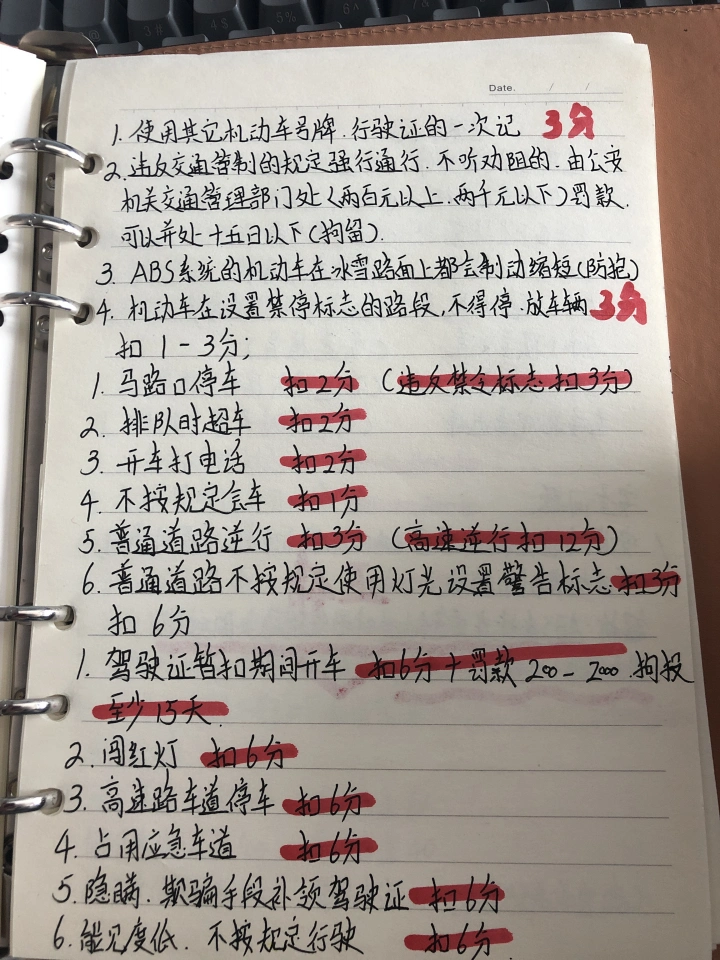 Date. / /
1. 使用其它机动车号牌.行驶证的一次记 3分
2. 违反交通管制的规定强行通行.不听劝阻的.由公安
机关交通管理部门处〈两百元以上.两千元以下〉罚款.
可以并处十五日以下(拘留).
3. ABS系统的机动车在冰雪路面上都会制动缩短(防抱)
4. 机动车在设置禁停标志的路段,不得停.放车辆 3分
扣 1-3分;
1. 马路口停车 扣2分 (违反禁令标志扣3分)
2. 排队时超车 扣2分
3. 开车打电话 扣2分
4. 不按规定会车 扣1分
5. 普通道路逆行 扣3分 (高速逆行扣 12分)
6. 普通道路不按规定使用灯光设置警告标志扣3分
扣 6分
1. 驾驶证暂扣期间开车 扣6分+罚款 200-2000.拘役
至少15天.
2. 闯红灯 扣6分
3. 高速路车道停车 扣6分
4. 占用应急车道 扣6分
5. 隐瞒.欺骗手段补领驾驶证 扣6分
6. 能见度低.不按规定行驶 扣6分